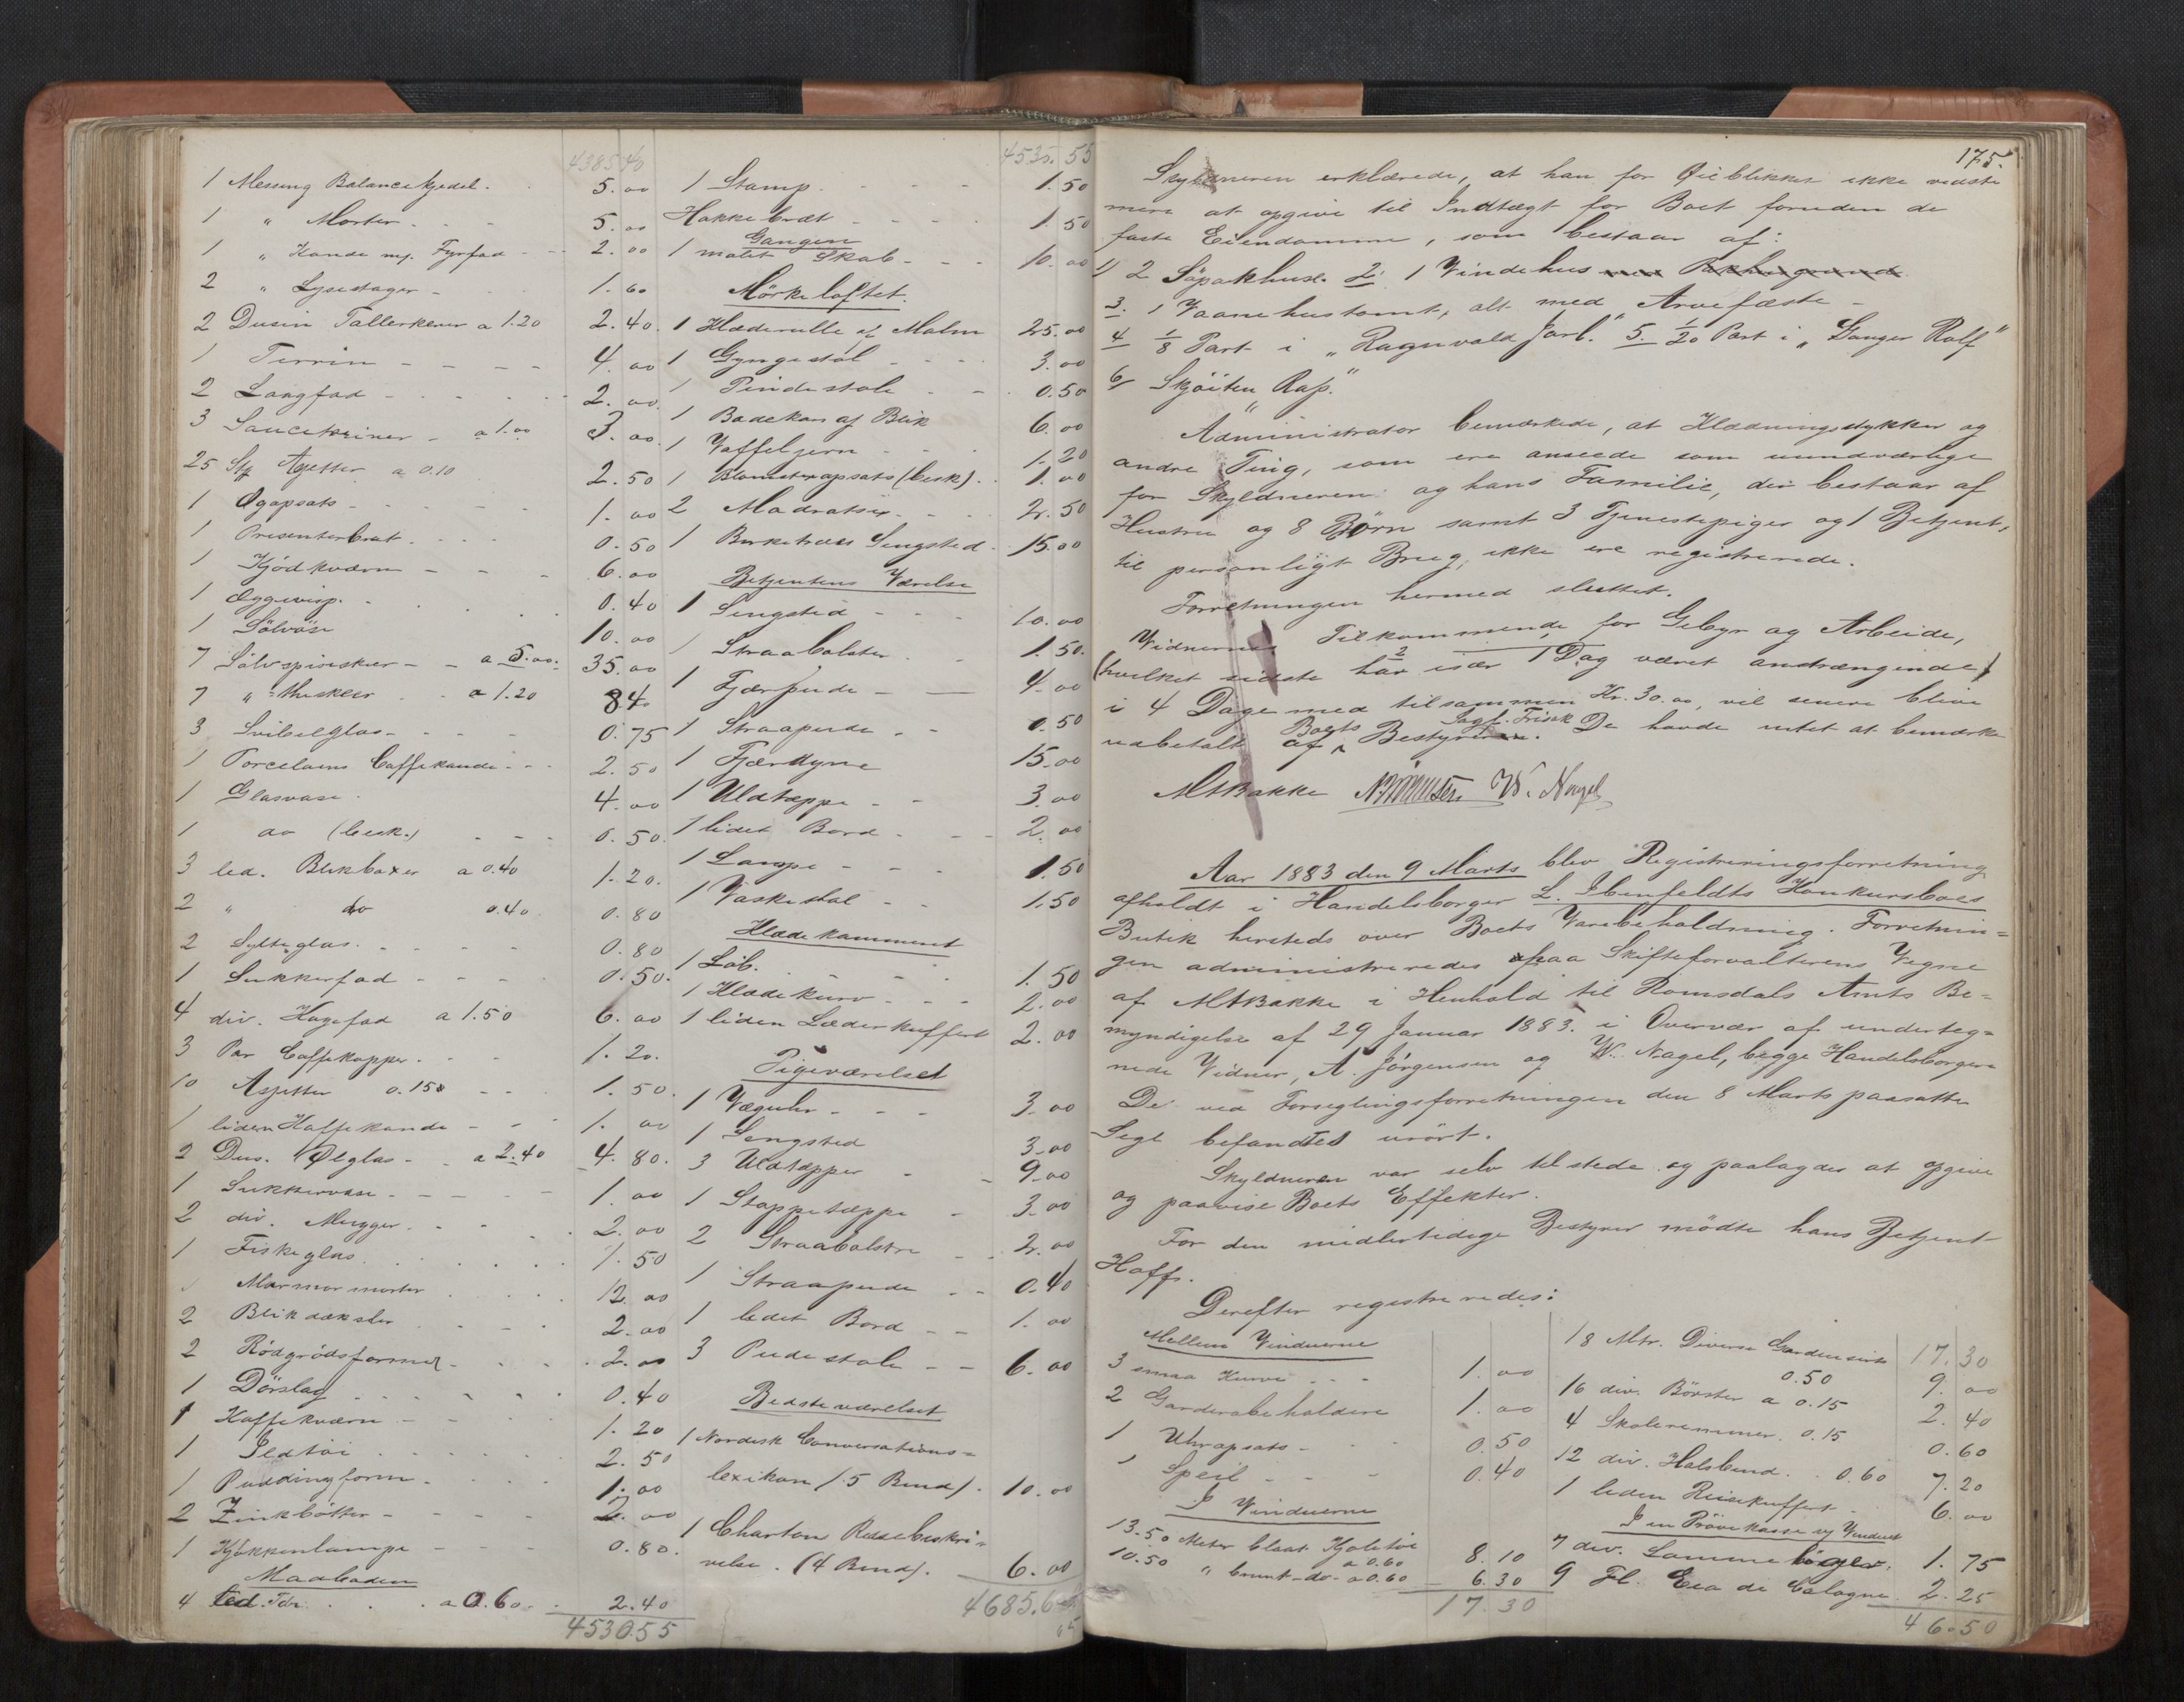 4385.40
1 Messing Balancekjedel. 5.00
1 " Morter. 5.00
1 " Kande m. Fyrfad 2.00
2 " Lysestager 1.60
2 Dusin Tallerkener a 1.20 2.40
1 Terrin 4.00
2 Langfad 2.00
3 Saucetriner a 1.00 3.00
25 Stk Asjetter a 0.10 2.50
1 Ægapsats 1.00
1 Presenterbræt 0.50
1 Kjödkværn 6.00
1 Æggevisp. 0.40
1 Sölvöse 10.00
7 Sölvspiseskeer a 5.00 35.00
7 " theskeer a 1.20 8.40
3 Svibelglas 0.75
1 Porcelæns Caffekande 2.50
1 Glasvase 4.00
1 do (besk.) 0.50
3 led. Blikboxer a 0.40 1.20
2 " do 0.40 0.80
2 Sylteglas. 0.80
1 Sukkerfad 0.50
4 div. Kagefad a 1.50 6.00
3 Par Caffekopper. 1.20
10 Asjetter 0.15 1.50
1 liden Kaffekande 1.00
2 Dus. Ölglas a 2.40 4.80
1 Sukkervase 1.00
2 div. Mugger. 2.00
1 Fiskeglas 1.50
1 Marmormorter 12.00
2 Blikdæksler 2.00
2 Rödgrödsformer 2.00
1 Dörslag 0.40
1 Kaffekværn 1.20
1 Ildtöi 2.50
1 Puddingform 1.00
2 Zinkbötter 2.00
1 Kjökkenlampe 0.80
Madboden
4 led. Tdr. a 0.60 2.40
4530.55
4535.55
1 Stamp 1.50
Hakkebræt 1.50
Gangen
1 malet Skab 10.00
Mörkeloftet
1 Klæderulle af Malm 25.00
1 Gyngestol 3.00
1 Pindestole 0.50
1 Badekar af Blik 6.00
1 Vaffeljern 1.20
1 Blomsterapsats (besk) 1.00
2 Madratser 2.50
1 Birketræes Sengsted 15.00
Betjentens Værelse
1 Sengsted 10.00
1 Straabolster 1.50
1 Fjærpude 4.00
1 Straapude 0.50
1 Fjærdyne 15.00
1 Uldtæppe 3.00
1 lidet Bord 2.00
1 Lampe 1.50
1 Vaskestol 1.50
Klædekammeret
1 Löb. 1.50
1 Klædekurv 2.00
1 liden Læderkuffert 2.00
Pigeværelset
1 Væguhr 3.00
1 Sengsted 3.00
3 Uldtæpper 9.00
1 Stoppetæppe 3.00
2 Straabolstre 2.00
1 Straapude 0.40
1 lidet Bord 1.00
3 Pudestole 6.00
Bedsteværelset
1 Nordisk Conversations=
lexikon (5 Bind). 10.00
1 Charton Reisebeskri=
velse. (4 Bind). 6.00
4685.6
175.
Skyldneren erklærede, at han for Øieblikket ikke vidste
mere at opgive til Indtægt for Boet foruden de
faste Eiendomme, som bestaar af:
1) 2 Söpakhuse. 2. 1 Vindehus med Pakhusgrund
3. 1 Vaanehustomt, alt med Arvefæste -
4 1/8 Part i "Ragnvald Jarl." 5. 1/20 Part i "Ganger Rolf"
6/ Skjöiten "Rap."
Administrator bemærkede, at Klædningsstykker og
andre Ting, som ere anseede som uundværlige
for Skyldneren og hans Familie, der bestaar af
Hustru og 8 Börn samt 3 Tjenestepiger og 1 Betjent,
til personligt Brug, ikke ere registrerede.
Forretningen hermed sluttet.
Vidnernes Tilkommende for Gebyr og Arbeide,
(hvilket sidste har især 1 Dag været anstrængende)
i 4 Dage med tilsammen Kr. 30.00, vil senere blive
udbetalt af Boets Bestyrer Sagf. Frisak. De havde intet at bemærke
MABakke W. Nagel
Aar 1883 den 9 Marts blev Registreringsforretning
afholdt i Handelsborger L. Ibenfeldts Konkursboes
Butik hersteds over Boets Varebeholdning. Forretnin=
gen administreredes paa Skifteforvalterens Vegne
af MABakke i Henhold til Romsdals Amts Be=
myndigelse af 29 Januar 1883. i Overvær af underteg=
nede Vidner, A. Jörgensen og W. Nagel, begge Handelsborgere
De ved Forseglingsforretningen den 8 Marts paasatte
Segl befandtes urört.
Skyldneren var selv tilstede og paalagdes at opgive
og paavise Boets Effekter.
For den midlertidige Bestyrer mödte hans Betjent
Hoff.
Derefter registreredes:
Mellem Vinduerne
3 smaa Kurve 1.00
2 Garderobeholdere 1.00
1 Uhrapsats 0.50
1 Speil 0.40
I Vinduerne
13.50 Meter blaat Kjoletöi a 0.60 8.10
10.50 " brunt do. a 0.60 6.30
17.30
17.30
18 Mtr. Diverse Gardensirts 0.50 9.00
16 div. Börster a 0.15 2.40
4 Skoleremmer. 0.15 0.60
12 div. Halsbind. 0.60 7.20
1 liden Reisekuffert 6.00
I en Prövekasse og Vinduet
7 div. Lommebøger. 1.75
9 Fl. Eau de Cologne. 2.25
46.50